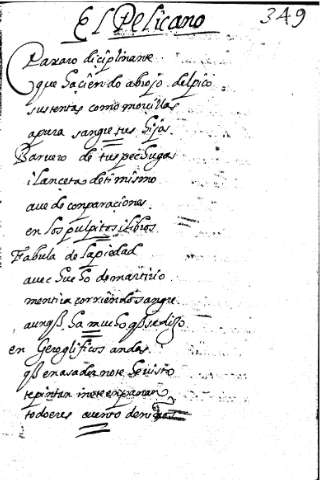 El Pelicano 349
Paxaro diciplinante
que haciendo abrojo del pico
sustentas como morcillas
a pura sangre tus hijos
Barvero de tus pechugas
i lanceta de ti mismo
ave de conparaciones
en los pulpitos i libros
Fabula de la piedad
avechucho de martirio
mentira corriendo sangre
aunq ha mucho q se dijo
en Geroglificos andas
q en asador no te he visto
te pintan no te enpanan
todo eres cuento de niños